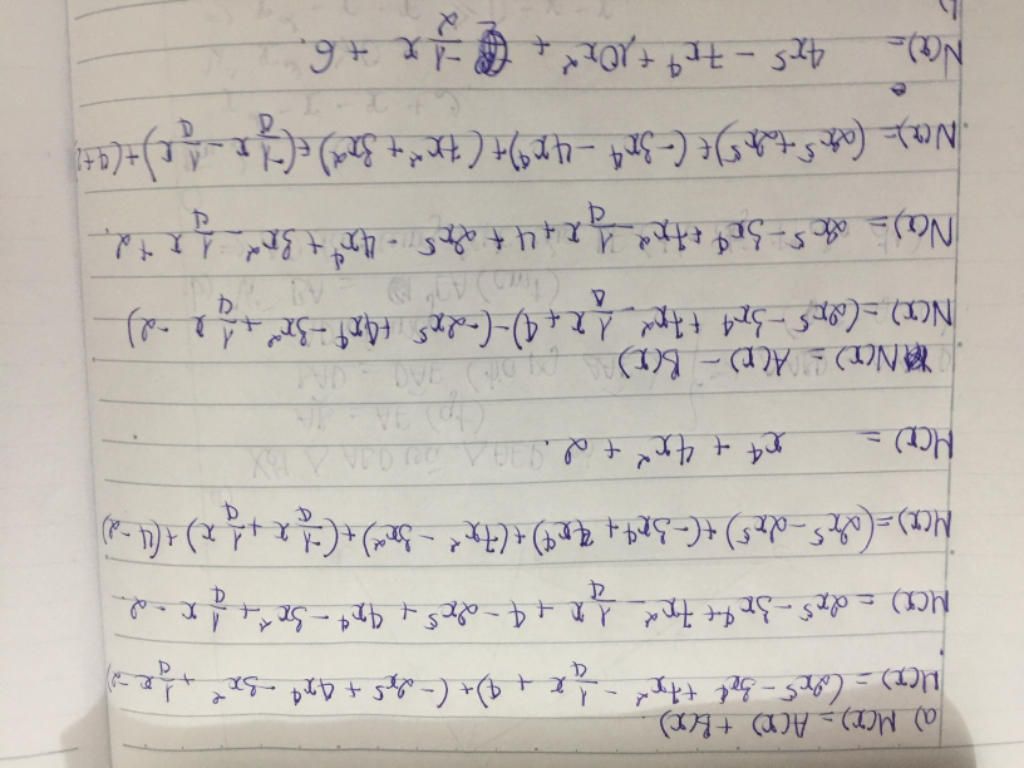 a) M(x) = A(x) + B(x)
M(x) = (2x⁵ - 3x⁴ + 7x² - 1/4 x + 4) + (-2x⁵ + 4x⁴ - 3x² + 1/4 x - 2)
M(x) = 2x⁵ - 3x⁴ + 7x² - 1/4 x + 4 - 2x⁵ + 4x⁴ - 3x² + 1/4 x - 2
M(x) = (2x⁵ - 2x⁵) + (-3x⁴ + 4x⁴) + (7x² - 3x²) + (-1/4 x + 1/4 x) + (4 - 2)
M(x) = x⁴ + 4x² + 2.
N(x) = A(x) - B(x)
N(x) = (2x⁵ - 3x⁴ + 7x² - 1/4 x + 4) - (-2x⁵ + 4x⁴ - 3x² + 1/4 x - 2)
N(x) = 2x⁵ - 3x⁴ + 7x² - 1/4 x + 4 + 2x⁵ - 4x⁴ + 3x² - 1/4 x + 2.
N(x) = (2x⁵ + 2x⁵) + (-3x⁴ - 4x⁴) + (7x² + 3x²) + (-1/4 x - 1/4 x) + (4 + 2
N(x) = 4x⁵ - 7x⁴ + 10x² + -1/2 x + 6.